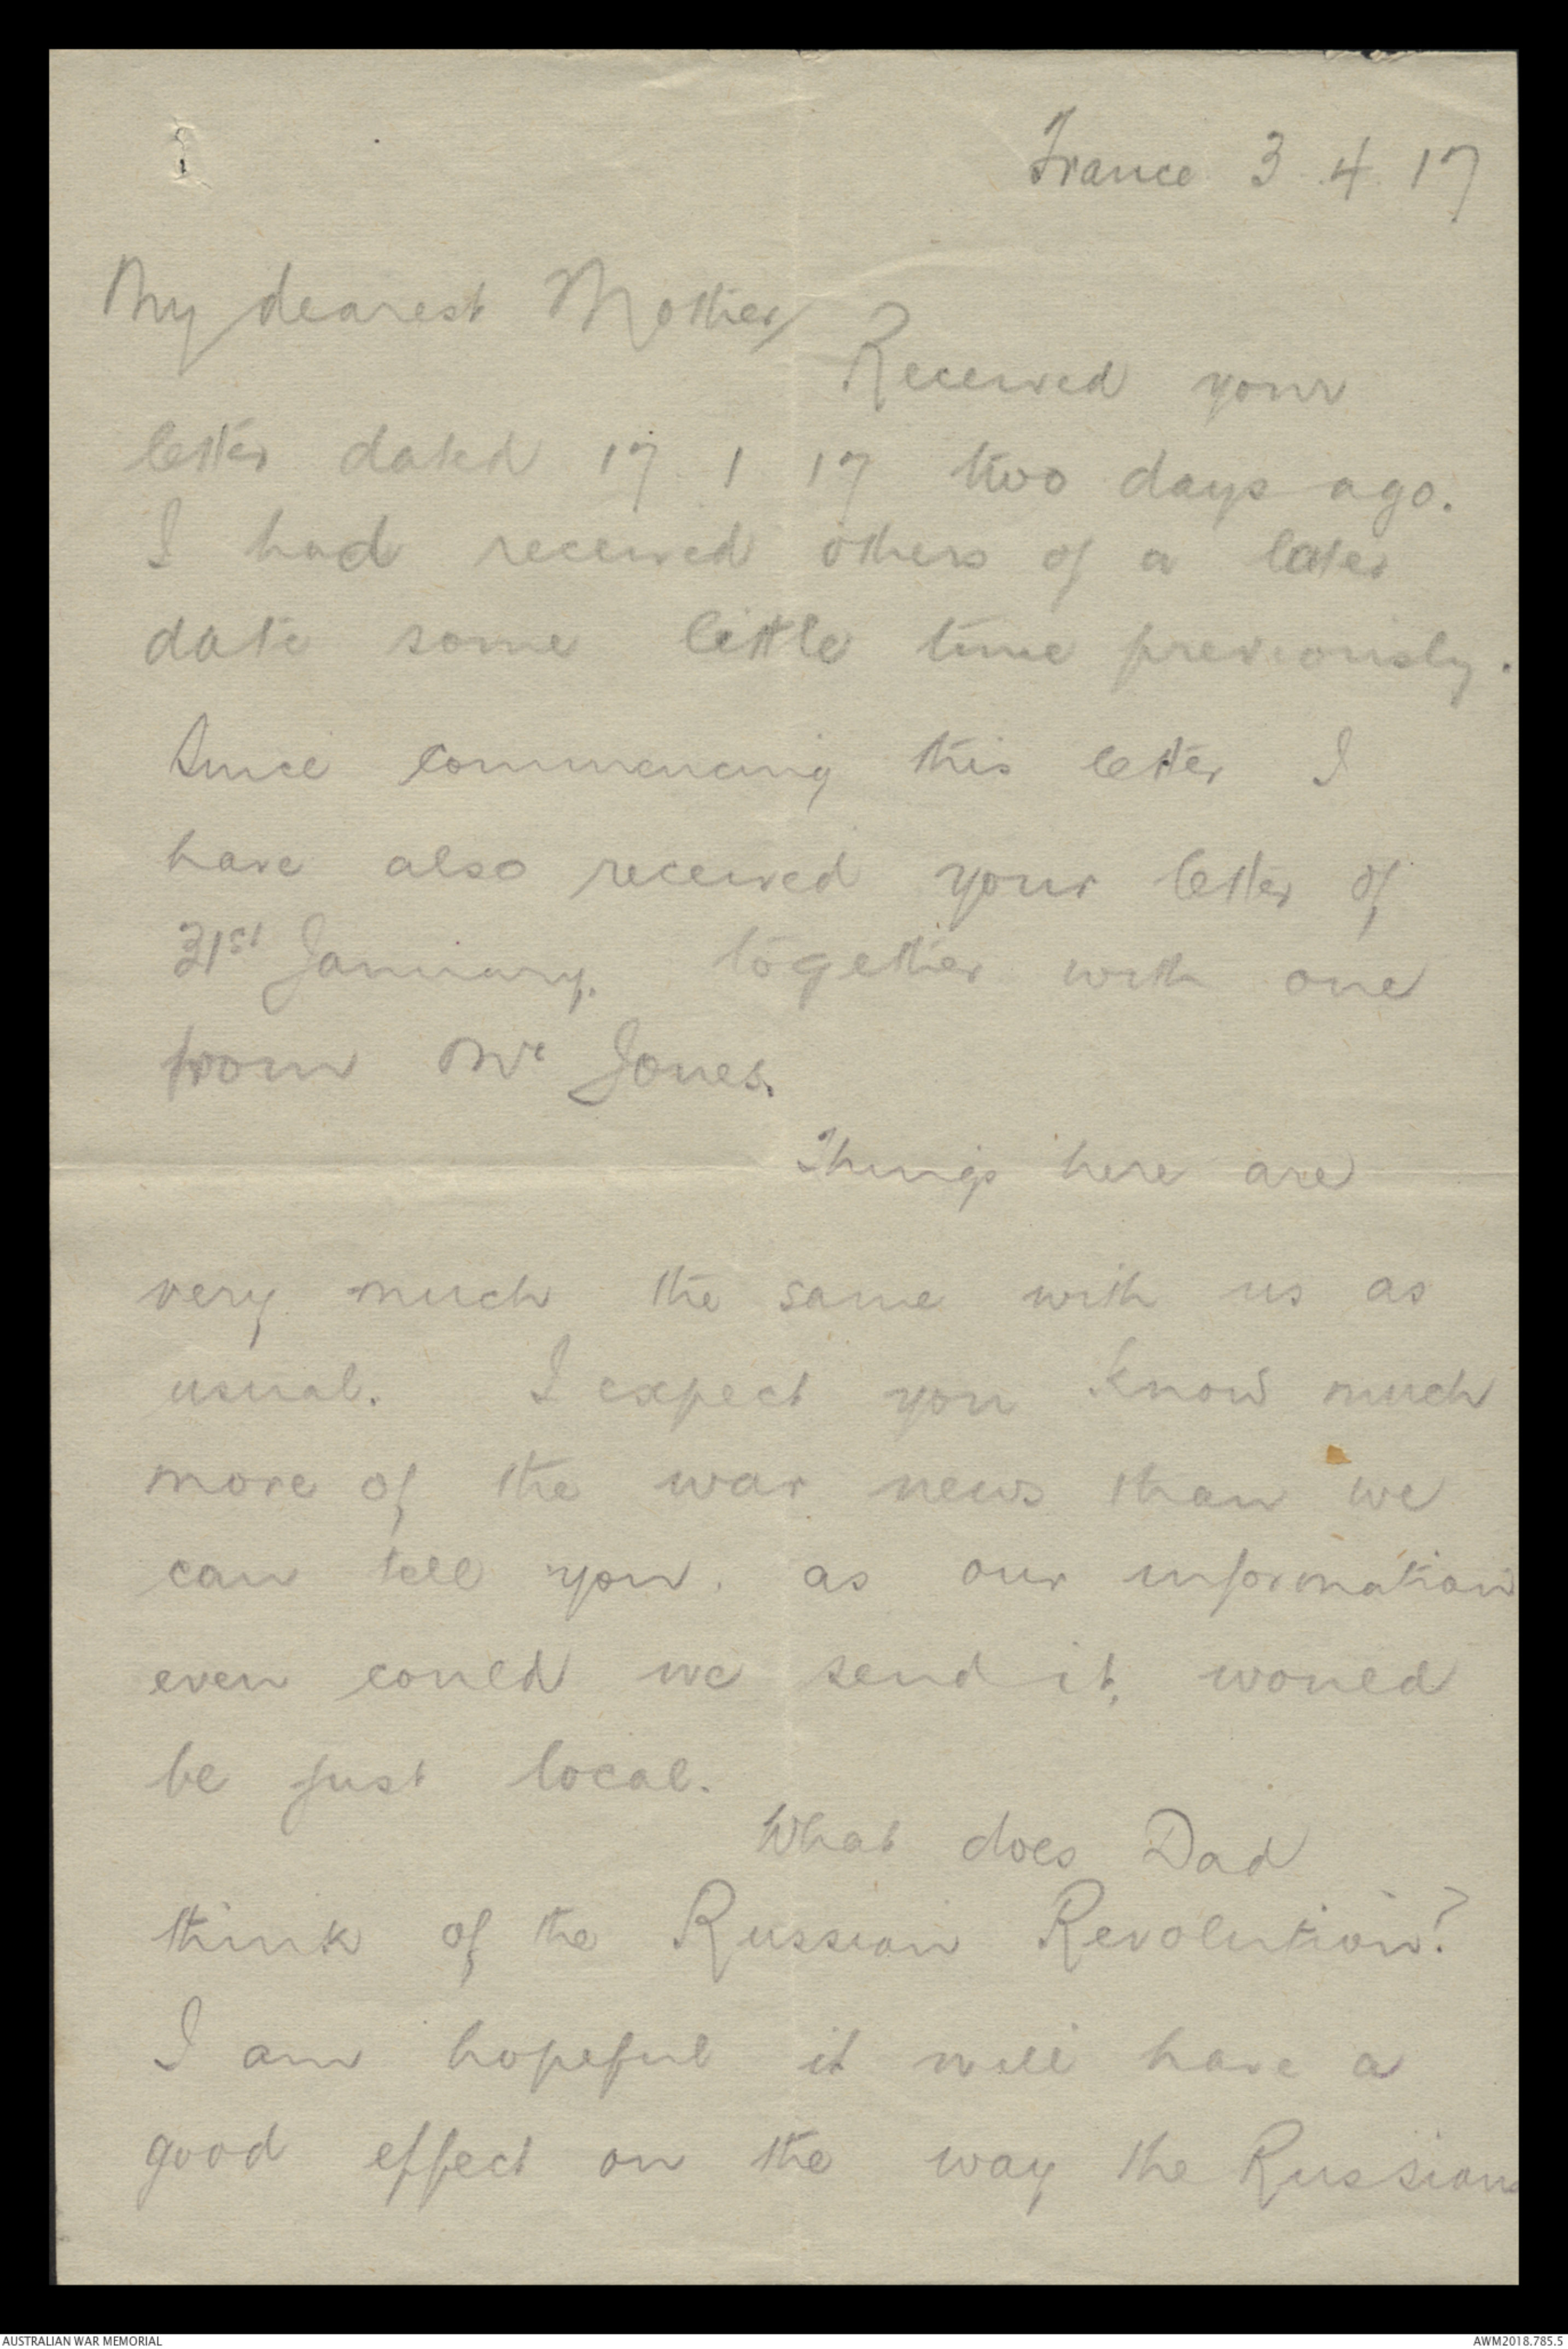 France 3. 4. 17
My dearest Mother
Received your
letter dated 17. 1 17 two days ago.
I had received others of a later
date some little time previously.
Since commencing this letter I
have also received your letter of
31st January. together with one
from Mr Jones.
Things here are
very much the same with us as
usual. I expect you know much
more of the war news than we
can tell you. as our information
even could we send it, would
be just local.
What does Dad
think of the Russian Revolution?
I am hopeful it will have a
good effect on the way the Russians
AUSTRALIAN WAR MEMORIAL
AWM2018.785.5